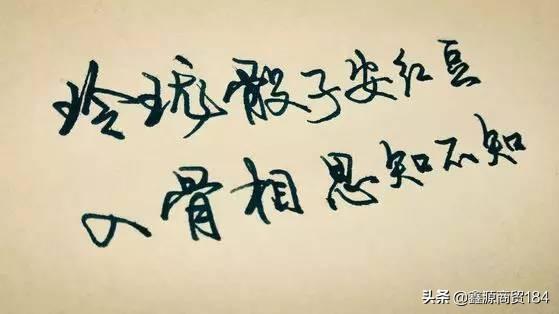 玲珑骰子安红豆
入骨相思知不知
头条 @鑫源商贸184